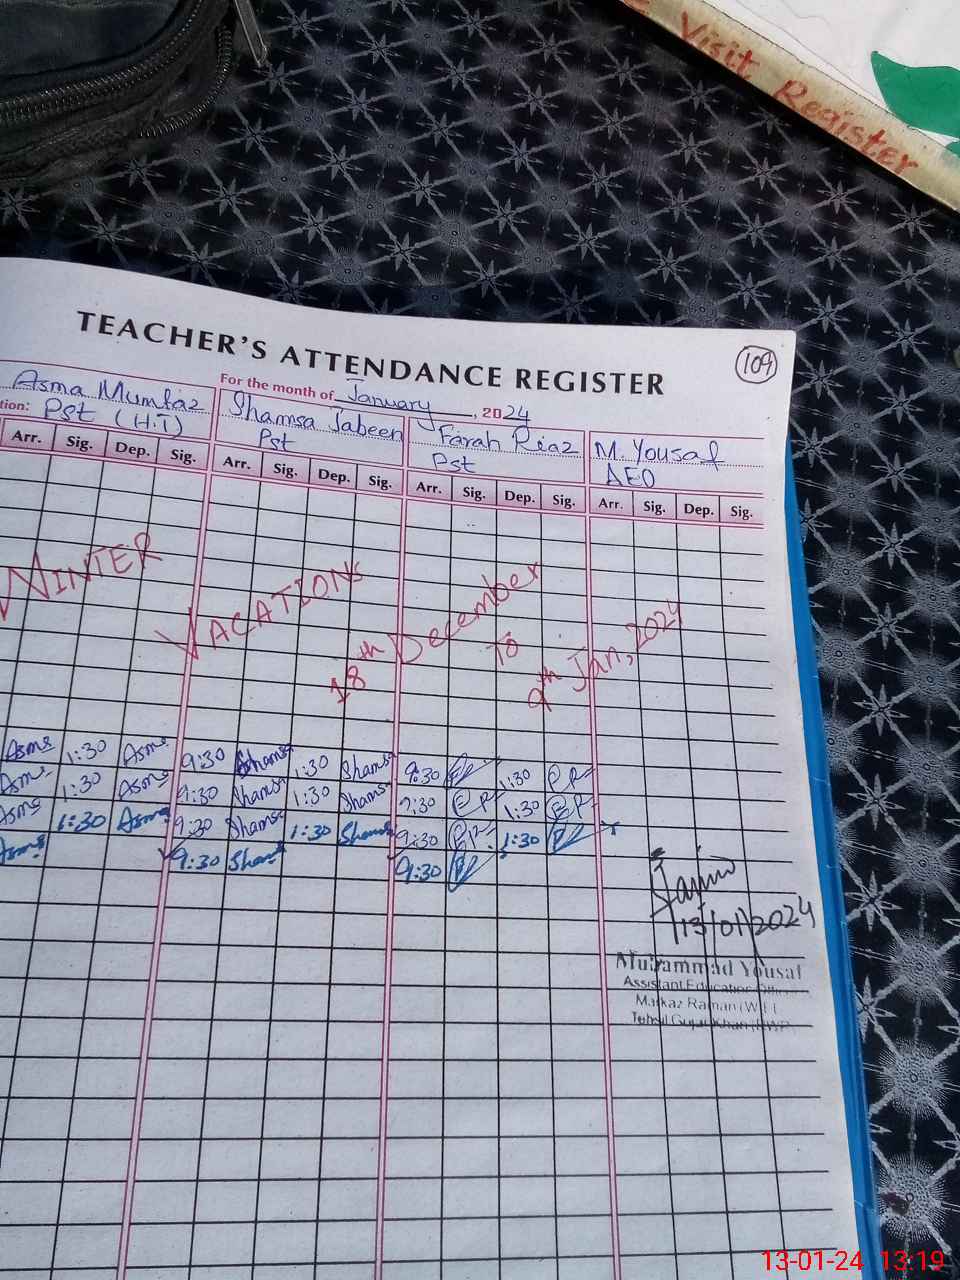 Visit Register
TEACHER'S ATTENDANCE REGISTER
109
For the month of January, 2024
Asma Mumtaz
tion: Pst (H.T)
Shamsa Jabeen
Pst
Farah Riaz
Pst
M. Yousaf
AEO
Arr. Sig. Dep. Sig. Arr. Sig. Dep. Sig. Arr. Sig. Dep. Sig. Arr. Sig. Dep. Sig.
WINTER VACATIONS 18th December To 9th Jan, 2024
Asma 1:30 Asma 9:30 Shamsa 1:30 Shamsa 9:30 1:30
Asma 1:30 Asma 9:30 Shamsa 1:30 Shamsa 9:30 1:30
Asma 1:30 Asma 9:30 Shamsa 1:30 Shamsa 9:30 1:30
Asma 9:30 Sham 9:30
13/01/2024
Muhammad Yousaf
Assistant Education
Markaz Raman (W
Tehsil Gujar Khan
13-01-24 13:19